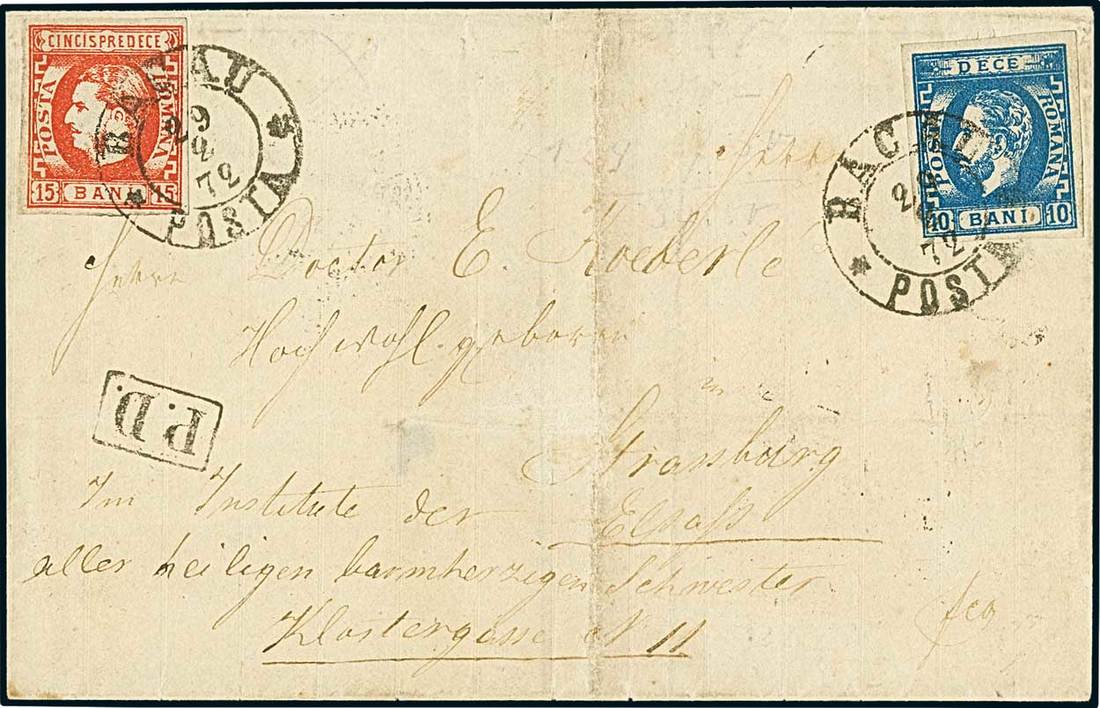 CINCISPREDECE
POSTA
ROMANA
15 BANI 15
BACAU
29
2
72
POSTA
DECE
POSTA
ROMANA
10 BANI 10
BACAU
29
72
POSTA
Herrn
Herrn Doctor E. Koeberle
Hochwohlgeboren
in
P.D.
Strassburg
Im Institute der Elsaß
aller heiligen barmherzigen Schwester
Klostergasse N 11